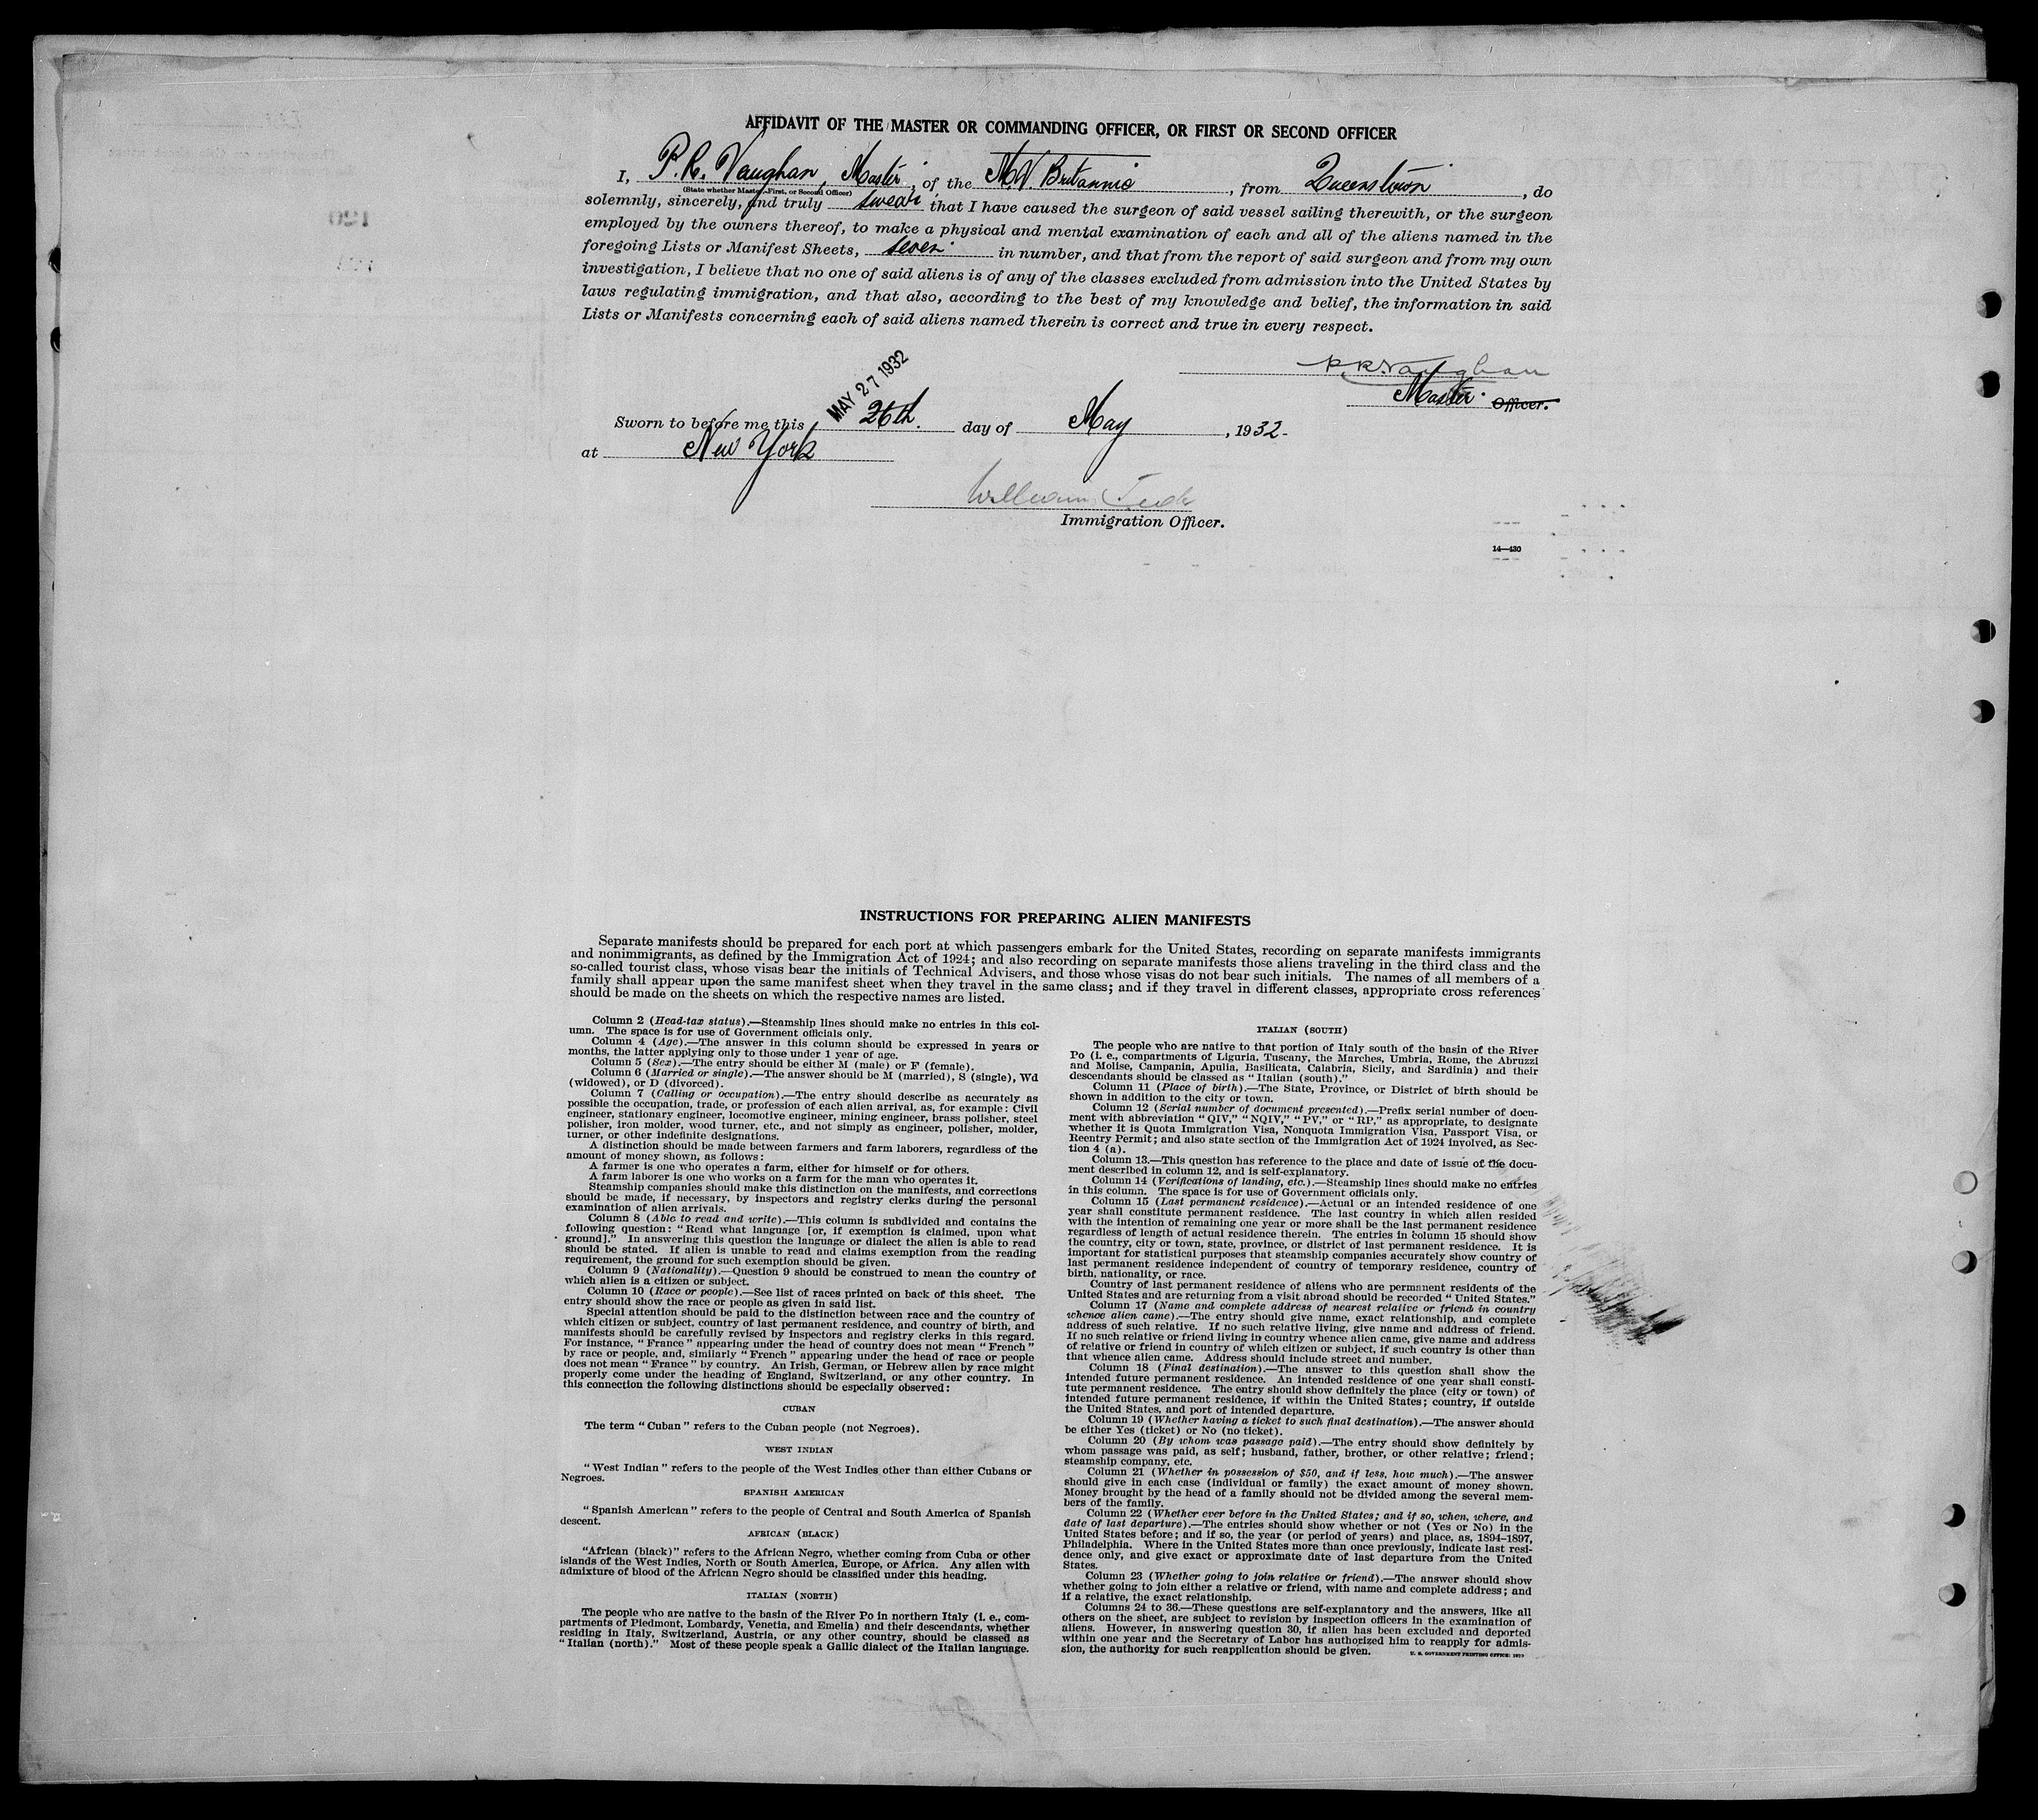 AFFIDAVIT OF THE MASTER OR COMMANDING OFFICER, OR FIRST OR SECOND OFFICER
I, P. R. Vaughan, Master, of the MV. Britannic, from Queenstown, do
(State whether Master, First, or Second Officer)
solemnly, sincerely, and truly swear that I have caused the surgeon of said vessel sailing therewith, or the surgeon
employed by the owners thereof, to make a physical and mental examination of each and all of the aliens named in the
foregoing Lists or Manifest Sheets, seven in number, and that from the report of said surgeon and from my own
investigation, I believe that no one of said aliens is of any of the classes excluded from admission into the United States by
laws regulating immigration, and that also, according to the best of my knowledge and belief, the information in said
Lists or Manifests concerning each of said aliens named therein is correct and true in every respect.
P. R. Vaughan
Master Officer.
MAY 27 1932
Sworn to before me this 26th. day of May, 1932.
at New York
William
Immigration Officer.
14—430
INSTRUCTIONS FOR PREPARING ALIEN MANIFESTS
Separate manifests should be prepared for each port at which passengers embark for the United States, recording on separate manifests immigrants
and nonimmigrants, as defined by the Immigration Act of 1924; and also recording on separate manifests those aliens traveling in the third class and the
so-called tourist class, whose visas bear the initials of Technical Advisers, and those whose visas do not bear such initials. The names of all members of a
family shall appear upon the same manifest sheet when they travel in the same class; and if they travel in different classes, appropriate cross references
should be made on the sheets on which the respective names are listed.
Column 2 (Head-tax status).—Steamship lines should make no entries in this col-
umn. The space is for use of Government officials only.
Column 4 (Age).—The answer in this column should be expressed in years or
months, the latter applying only to those under 1 year of age.
Column 5 (Sex).—The entry should be either M (male) or F (female).
Column 6 (Married or single).—The answer should be M (married), S (single), Wd
(widowed), or D (divorced).
Column 7 (Calling or occupation).—The entry should describe as accurately as
possible the occupation, trade, or profession of each alien arrival, as, for example: Civil
engineer, stationary engineer, locomotive engineer, mining engineer, brass polisher, steel
polisher, iron molder, wood turner, etc., and not simply as engineer, polisher, molder,
turner, or other indefinite designations.
A distinction should be made between farmers and farm laborers, regardless of the
amount of money shown, as follows:
A farmer is one who operates a farm, either for himself or for others.
A farm laborer is one who works on a farm for the man who operates it.
Steamship companies should make this distinction on the manifests, and corrections
should be made, if necessary, by inspectors and registry clerks during the personal
examination of alien arrivals.
Column 8 (Able to read and write).—This column is subdivided and contains the
following question: "Read what language [or, if exemption is claimed, upon what
ground]." In answering this question the language or dialect the alien is able to read
should be stated. If alien is unable to read and claims exemption from the reading
requirement, the ground for such exemption should be given.
Column 9 (Nationality).—Question 9 should be construed to mean the country of
which alien is a citizen or subject.
Column 10 (Race or people).—See list of races printed on back of this sheet. The
entry should show the race or people as given in said list.
Special attention should be paid to the distinction between race and the country of
which citizen or subject, country of last permanent residence, and country of birth, and
manifests should be carefully revised by inspectors and registry clerks in this regard.
For instance, "France" appearing under the head of country does not mean "French"
by race or people, and, similarly "French" appearing under the head of race or people
does not mean "France" by country. An Irish, German, or Hebrew alien by race might
properly come under the heading of England, Switzerland, or any other country. In
this connection the following distinctions should be especially observed:
CUBAN
The term "Cuban" refers to the Cuban people (not Negroes).
WEST INDIAN
"West Indian" refers to the people of the West Indies other than either Cubans or
Negroes.
SPANISH AMERICAN
"Spanish American" refers to the people of Central and South America of Spanish
descent.
AFRICAN (BLACK)
"African (black)" refers to the African Negro, whether coming from Cuba or other
islands of the West Indies, North or South America, Europe, or Africa. Any alien with
admixture of blood of the African Negro should be classified under this heading.
ITALIAN (NORTH)
The people who are native to the basin of the River Po in northern Italy (i. e., com-
partments of Piedmont, Lombardy, Venetia, and Emelia) and their descendants, whether
residing in Italy, Switzerland, Austria, or any other country, should be classed as
"Italian (north)." Most of these people speak a Gallic dialect of the Italian language.
ITALIAN (SOUTH)
The people who are native to that portion of Italy south of the basin of the River
Po (i. e., compartments of Liguria, Tuscany, the Marches, Umbria, Rome, the Abruzzi
and Molise, Campania, Apulia, Basilicata, Calabria, Sicily, and Sardinia) and their
descendants should be classed as "Italian (south)."
Column 11 (Place of birth).—The State, Province, or District of birth should be
shown in addition to the city or town.
Column 12 (Serial number of document presented).—Prefix serial number of docu-
ment with abbreviation "QIV," "NQIV," "PV," or "RP," as appropriate, to designate
whether it is Quota Immigration Visa, Nonquota Immigration Visa, Passport Visa, or
Reentry Permit; and also state section of the Immigration Act of 1924 involved, as Sec-
tion 4 (a).
Column 13.—This question has reference to the place and date of issue of the docu-
ment described in column 12, and is self-explanatory.
Column 14 (Verifications of landing, etc.).—Steamship lines should make no entries
in this column. The space is for use of Government officials only.
Column 15 (Last permanent residence).—Actual or an intended residence of one
year shall constitute permanent residence. The last country in which alien resided
with the intention of remaining one year or more shall be the last permanent residence
regardless of length of actual residence therein. The entries in column 15 should show
the country, city or town, state, province, or district of last permanent residence. It is
important for statistical purposes that steamship companies accurately show country of
last permanent residence independent of country of temporary residence, country of
birth, nationality, or race.
Country of last permanent residence of aliens who are permanent residents of the
United States and are returning from a visit abroad should be recorded "United States."
Column 17 (Name and complete address of nearest relative or friend in country
whence alien came).—The entry should give name, exact relationship, and complete
address of such relative. If no such relative living, give name and address of friend.
If no such relative or friend living in country whence alien came, give name and address
of relative or friend in country of which citizen or subject, if such country is other than
that whence alien came. Address should include street and number.
Column 18 (Final destination).—The answer to this question shall show the
intended future permanent residence. An intended residence of one year shall consti-
tute permanent residence. The entry should show definitely the place (city or town) of
intended future permanent residence, if within the United States; country, if outside
the United States, and port of intended departure.
Column 19 (Whether having a ticket to such final destination).—The answer should
be either Yes (ticket) or No (no ticket).
Column 20 (By whom was passage paid).—The entry should show definitely by
whom passage was paid, as self; husband, father, brother, or other relative; friend;
steamship company, etc.
Column 21 (Whether in possession of $50, and if less, how much).—The answer
should give in each case (individual or family) the exact amount of money shown.
Money brought by the head of a family should not be divided among the several mem-
bers of the family.
Column 22 (Whether ever before in the United States; and if so, when, where, and
date of last departure).—The entries should show whether or not (Yes or No) in the
United States before; and if so, the year (or period of years) and place, as, 1894–1897,
Philadelphia. Where in the United States more than once previously, indicate last resi-
dence only, and give exact or approximate date of last departure from the United
States.
Column 23 (Whether going to join relative or friend).—The answer should show
whether going to join either a relative or friend, with name and complete address; and
if a relative, the exact relationship.
Columns 24 to 36.—These questions are self-explanatory and the answers, like all
others on the sheet, are subject to revision by inspection officers in the examination of
aliens. However, in answering question 30, if alien has been excluded and deported
within one year and the Secretary of Labor has authorized him to reapply for admis-
sion, the authority for such reapplication should be given.
U. S. GOVERNMENT PRINTING OFFICE: